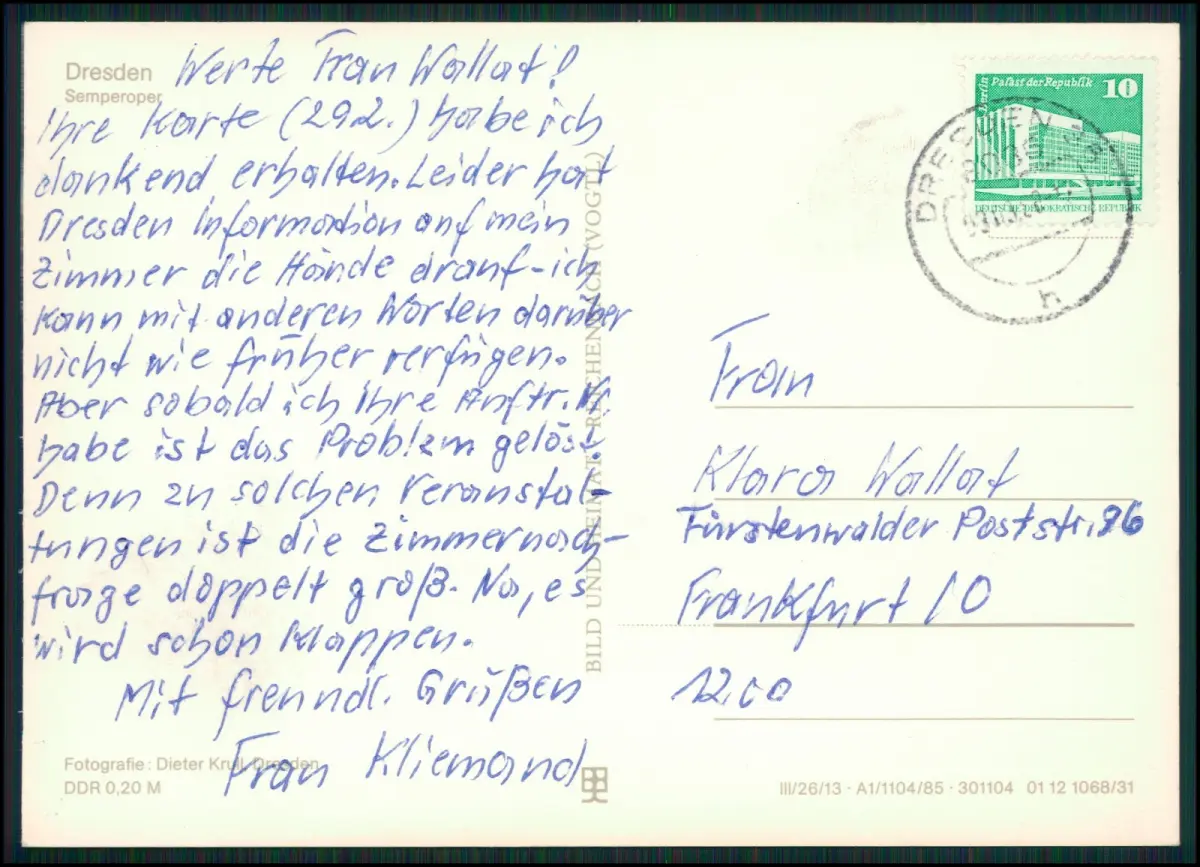 Dresden
Semperoper
Werte Frau Wallat!
Ihre Karte (29.2.) habe ich
dankend erhalten. Leider hat
Dresden Information auf mein
Zimmer die Hände drauf - ich
kann mit anderen Worten darüber
nicht wie früher verfügen.
Aber sobald ich Ihre Auftr. Nr.
habe ist das Problem gelöst.
Denn zu solchen Veranstal-
tungen ist die Zimmernach-
frage doppelt groß. Na, es
wird schon klappen.
Mit freundl. Grüßen
Frau Kliemand
Fotografie: Dieter Krull, Dresden
DDR 0,20 M
BILD UND HEIMAT REICHENBACH (VOGTL)
Berlin Palast der Republik 10
DEUTSCHE DEMOKRATISCHE REPUBLIK
DRESDEN
h
Frau
Klara Wallat
Fürstenwalder Poststr. 96
Frankfurt / O
1200
III/26/13 · A1/1104/85 · 301104 01 12 1068/31